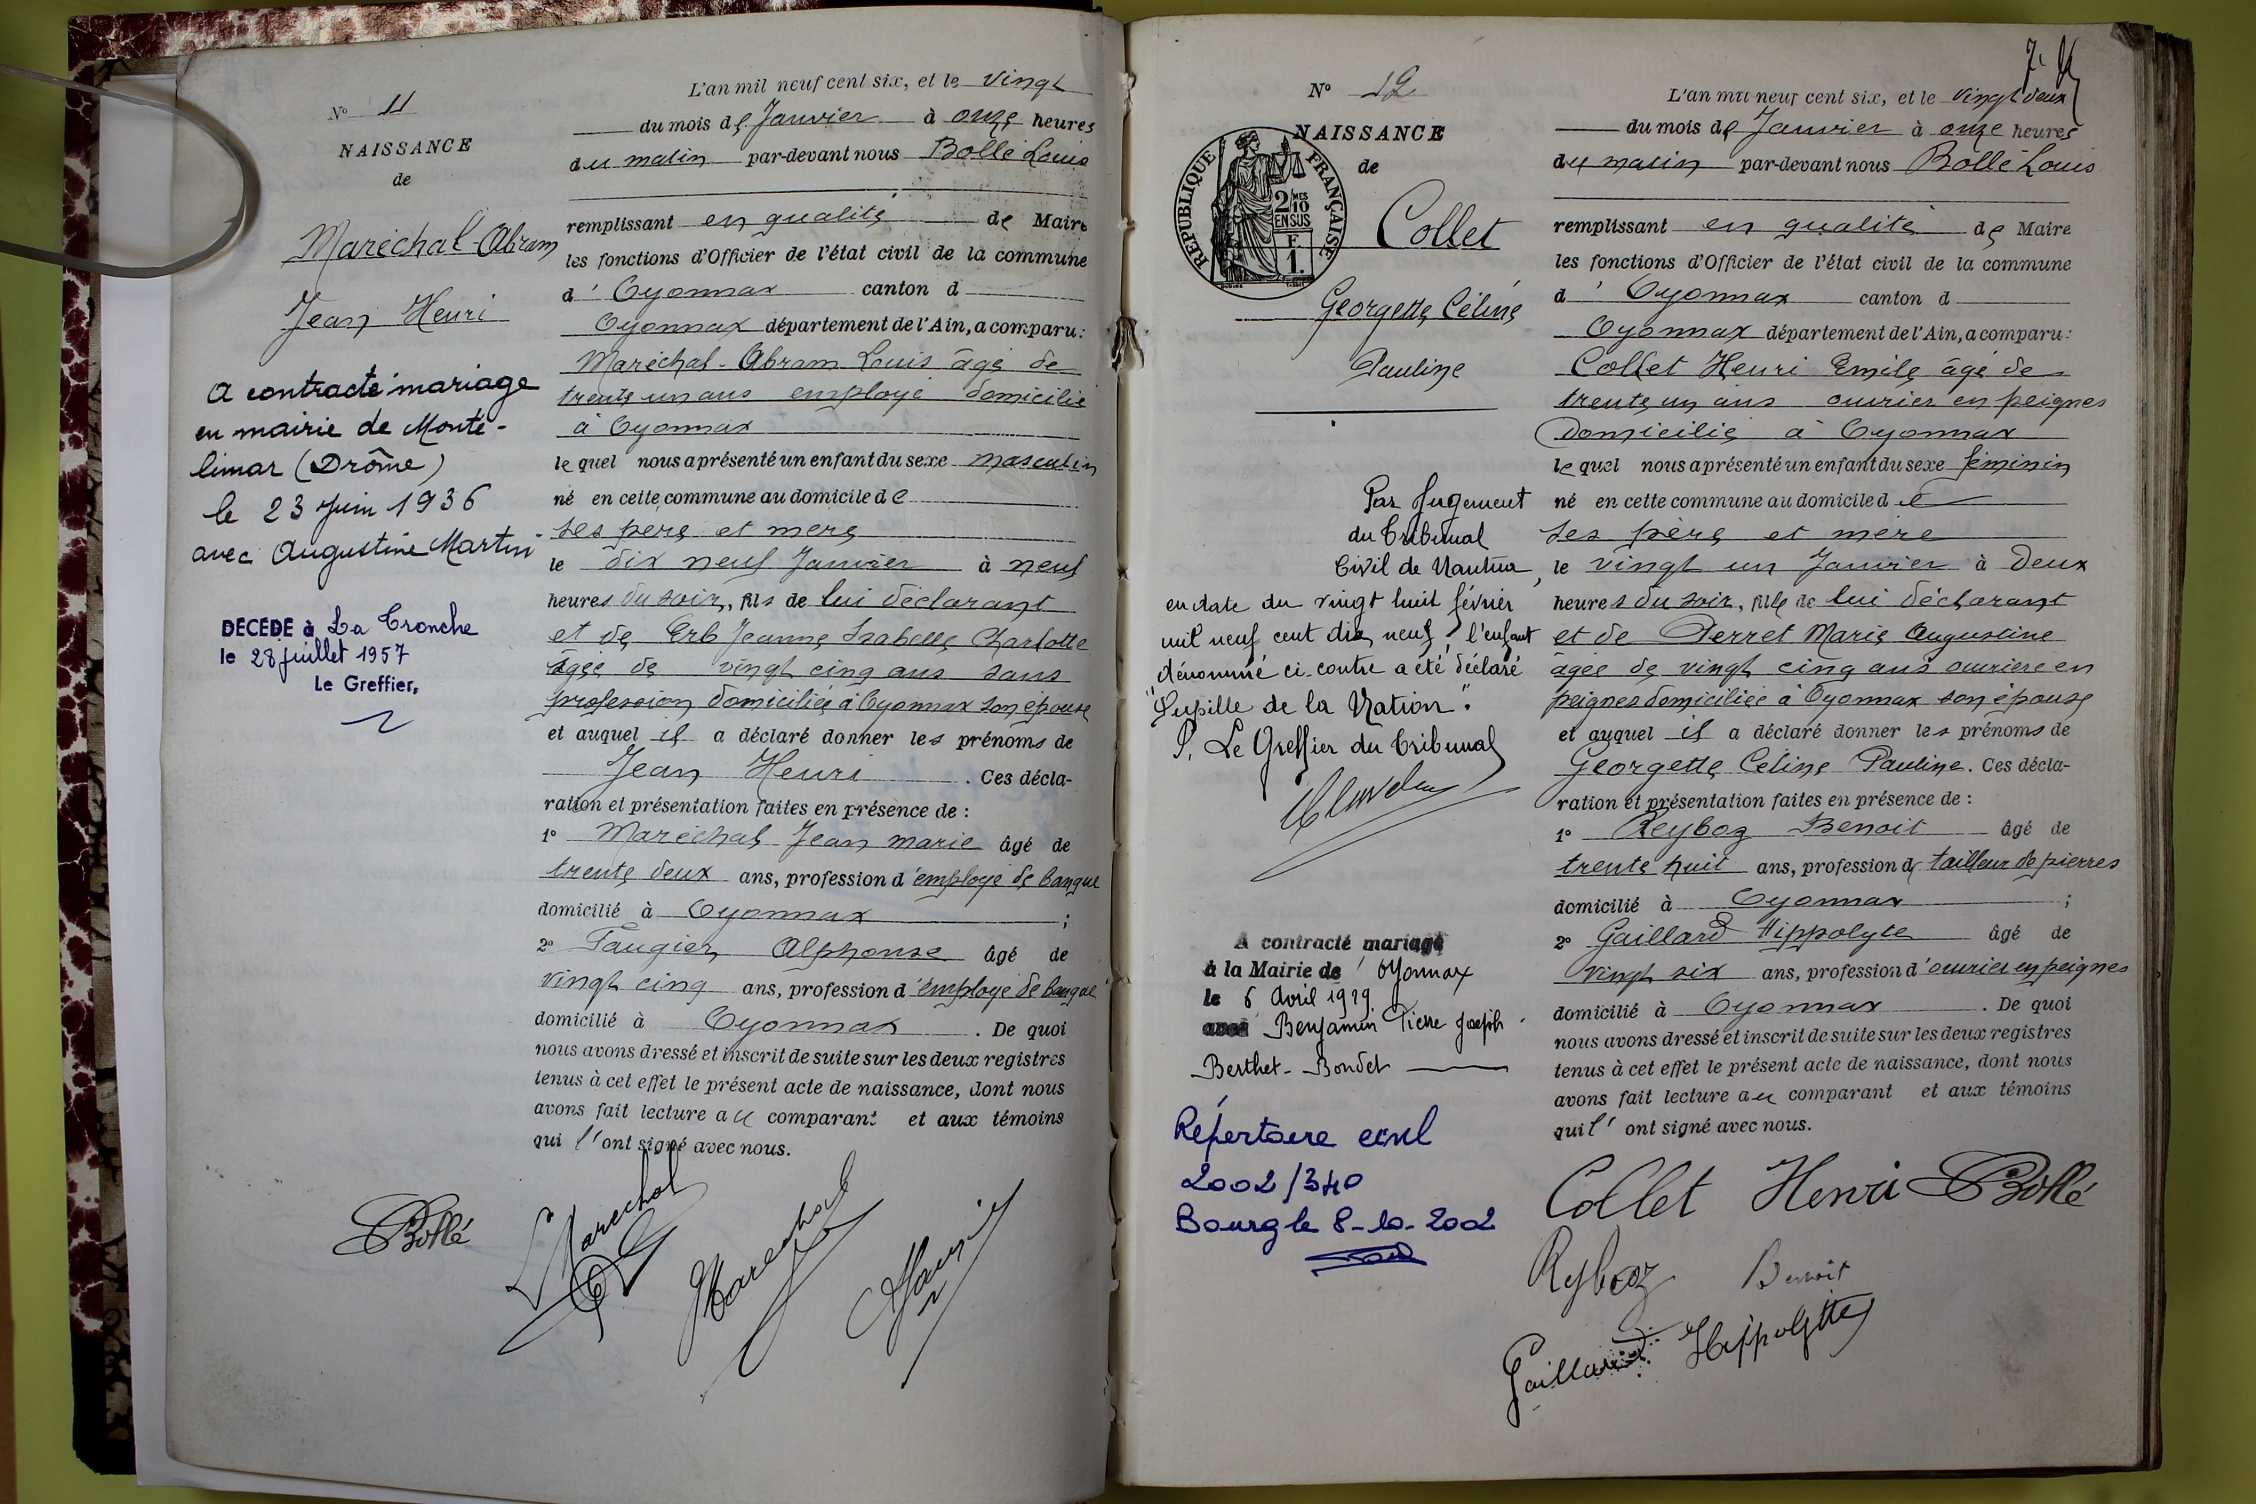 N° 11
NAISSANCE
de
Maréchal-Abram
Jean Henri
A contracté mariage
en mairie de Monté-
limar (Drôme)
le 23 Juin 1936
avec Augustine Martin
DECEDE à La Tronche
le 28 juillet 1957
Le Greffier,
L'an mil neuf cent six, et le vingt
du mois de Janvier à onze heures
du matin par-devant nous Bollé Louis
remplissant en qualité de Maire
les fonctions d'Officier de l'état civil de la commune
d' Oyonnax canton d
Oyonnax département de l'Ain, a comparu:
Maréchal-Abram Louis âgé de
trente un ans employé domicilié
à Oyonnax
le quel nous a présenté un enfant du sexe masculin
né en cette commune au domicile de
ses père et mère
le dix neuf Janvier à neuf
heures du soir, fils de lui déclarant
et de Erb Jeanne Isabelle Charlotte
âgée de vingt cinq ans sans
profession domiciliée à Oyonnax son épouse
et auquel il a déclaré donner les prénoms de
Jean Henri . Ces décla-
ration et présentation faites en présence de :
1° Maréchal Jean marie âgé de
trente deux ans, profession d'employé de banque
domicilié à Oyonnax ;
2° Faugier Alphonse âgé de
vingt cinq ans, profession d'employé de banque
domicilié à Oyonnax . De quoi
nous avons dressé et inscrit de suite sur les deux registres
tenus à cet effet le présent acte de naissance, dont nous
avons fait lecture au comparant et aux témoins
qui l'ont signé avec nous.
Bollé
L Marechal
JMarechal
N° 12
NAISSANCE
de
REPUBLIQUE FRANÇAISE
2/10 MES
EN SUS
F.
1.
Collet
Georgette Céline
Pauline
Par Jugement
du Tribunal
Civil de Nantua,
en date du vingt huit février
mil neuf cent dix neuf, l'enfant
dénommé ci-contre a été déclaré
"Pupille de la Nation".
P. Le Greffier du Tribunal
A contracté mariage
à la Mairie de Oyonnax
le 6 Avril 1929
avec Benjamin Pierre Joseph
Berthet-Bondet
Répertoire civil
2002/340
Bourg le 8-10-2002
L'an mil neuf cent six, et le vingt deux
du mois de Janvier à onze heures
du matin par-devant nous Bollé Louis
remplissant en qualité de Maire
les fonctions d'Officier de l'état civil de la commune
d' Oyonnax canton d
Oyonnax département de l'Ain, a comparu:
Collet Henri Emile âgé de
trente un ans ouvrier en peignes
domicilié à Oyonnax
le quel nous a présenté un enfant du sexe féminin
né en cette commune au domicile de
ses père et mère
le vingt un Janvier à deux
heures du soir, fille de lui déclarant
et de Perret Marie Augustine
âgée de vingt cinq ans ouvrière en
peignes domiciliée à Oyonnax son épouse
et auquel il a déclaré donner les prénoms de
Georgette Céline Pauline. Ces décla-
ration et présentation faites en présence de :
1° Reyboz Benoit âgé de
trente huit ans, profession de tailleur de pierres
domicilié à Oyonnax ;
2° Gaillard Hippolyte âgé de
vingt six ans, profession d'ouvrier en peignes
domicilié à Oyonnax . De quoi
nous avons dressé et inscrit de suite sur les deux registres
tenus à cet effet le présent acte de naissance, dont nous
avons fait lecture au comparant et aux témoins
qui l' ont signé avec nous.
Collet Henri Bollé
Reyboz Benoit
Gaillard Hippolyte